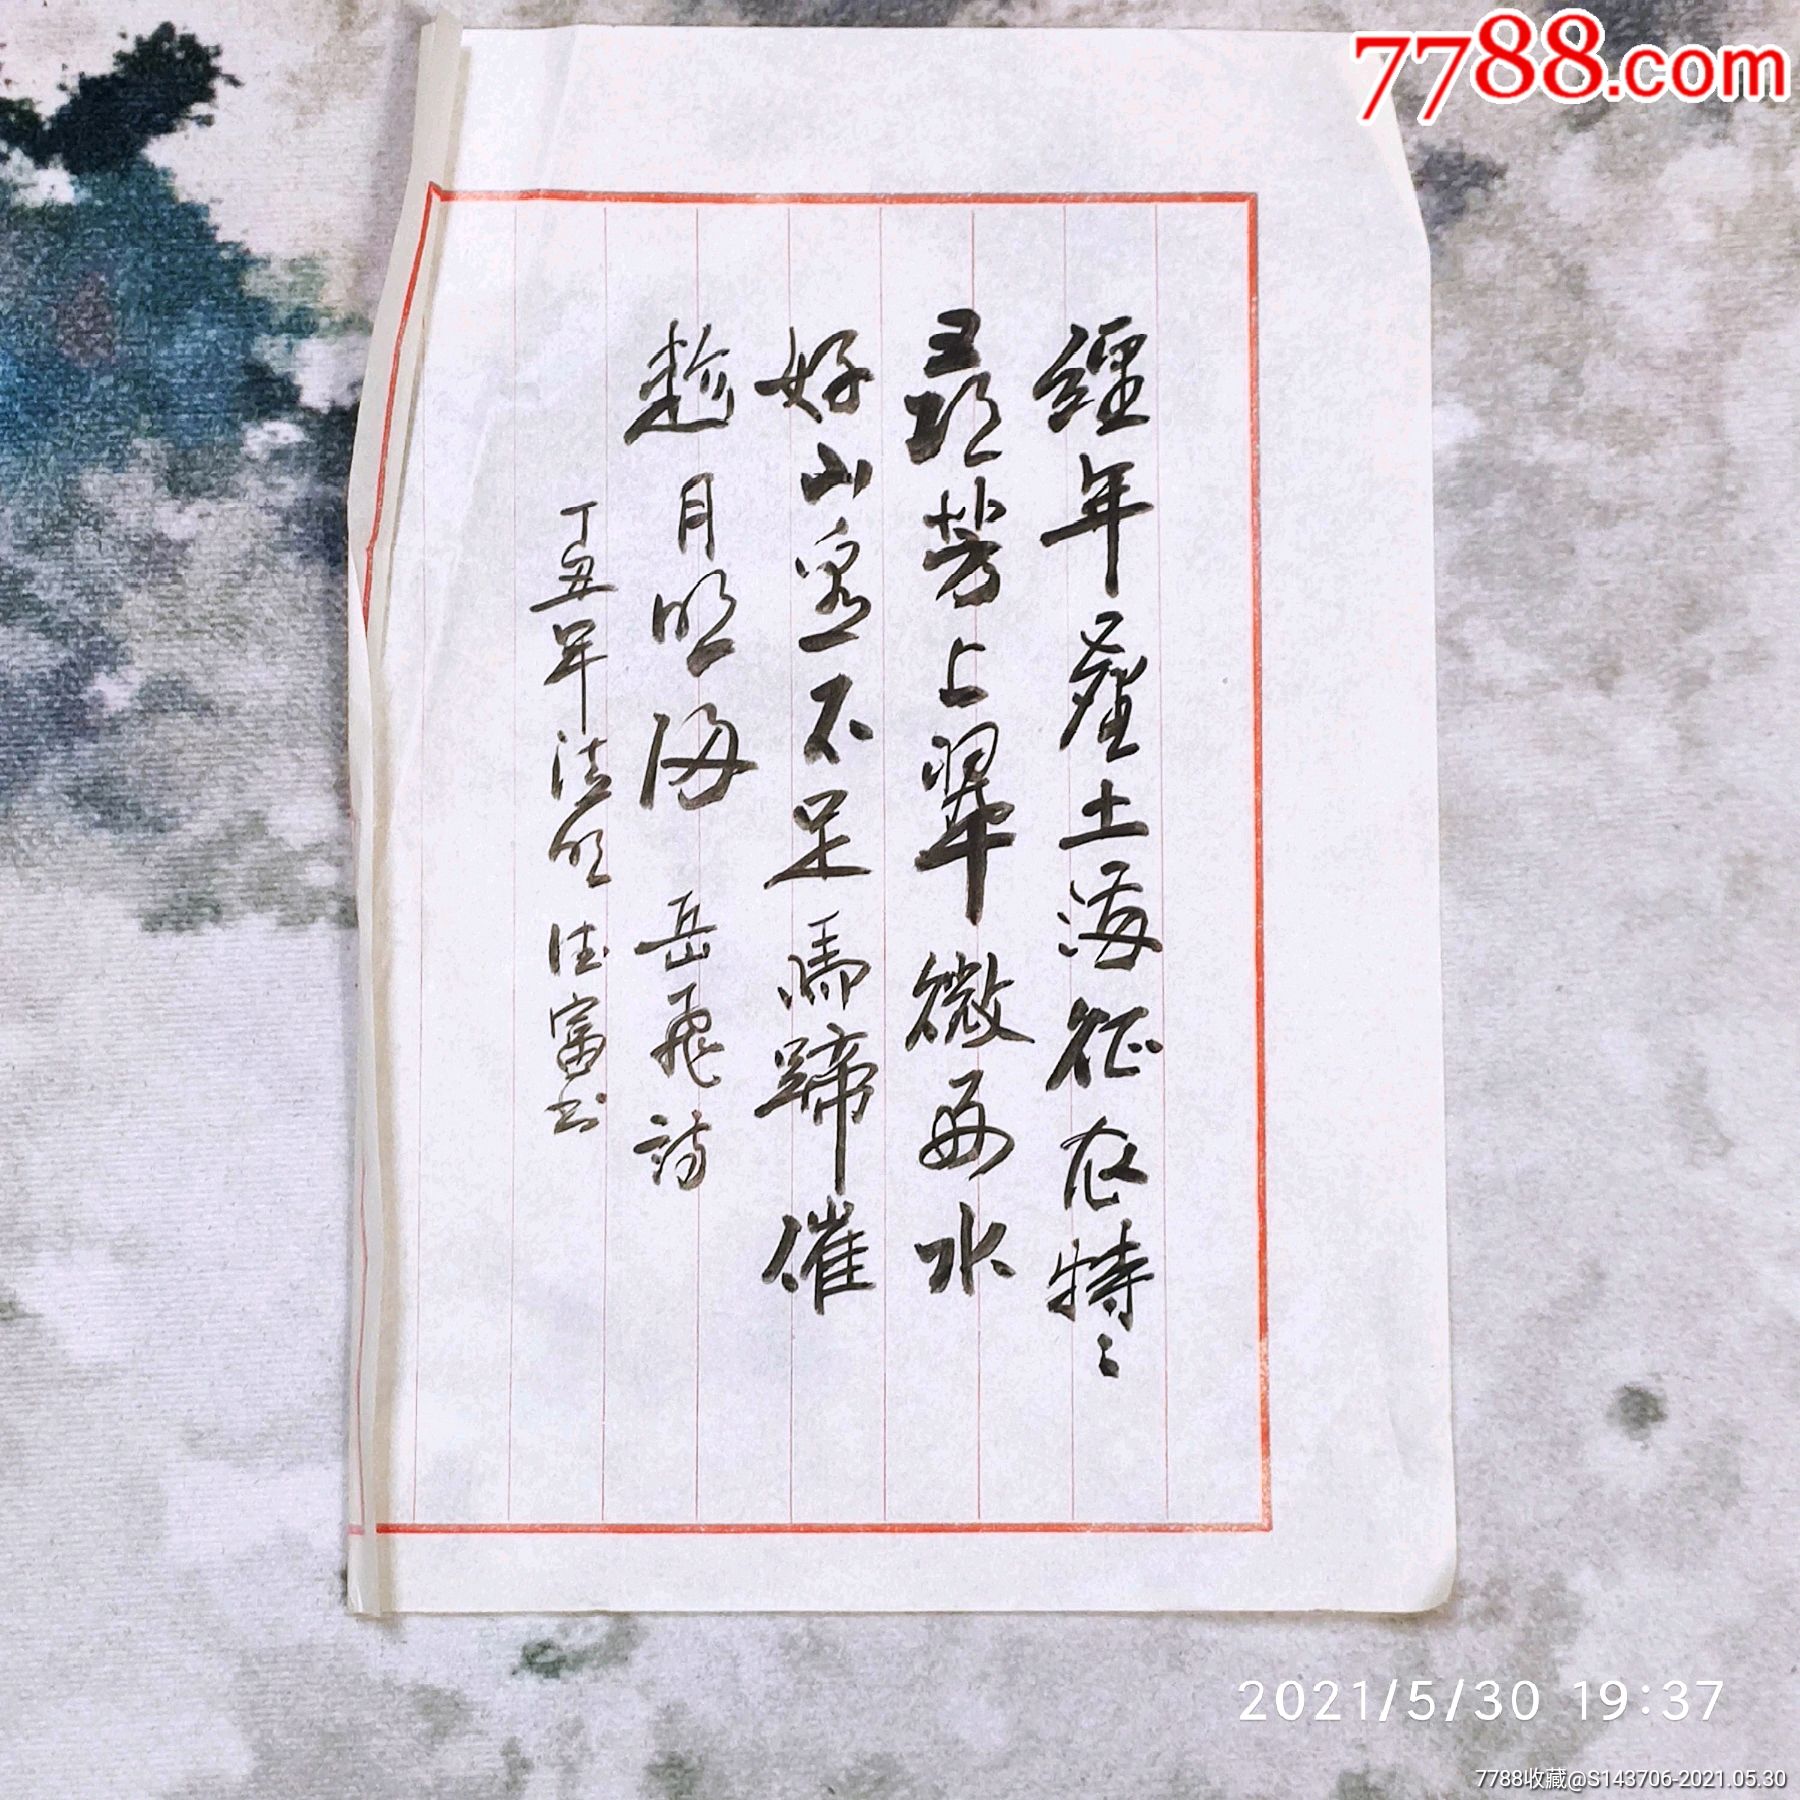 經年塵土滿征衣特〻
尋芳上翠微好水
好山看不足馬蹄催
趁月明歸 岳飛詩
丁丑年清明 德富书
7788.com
2021/5/30 19:37
7788收藏@S143706-2021.05.30